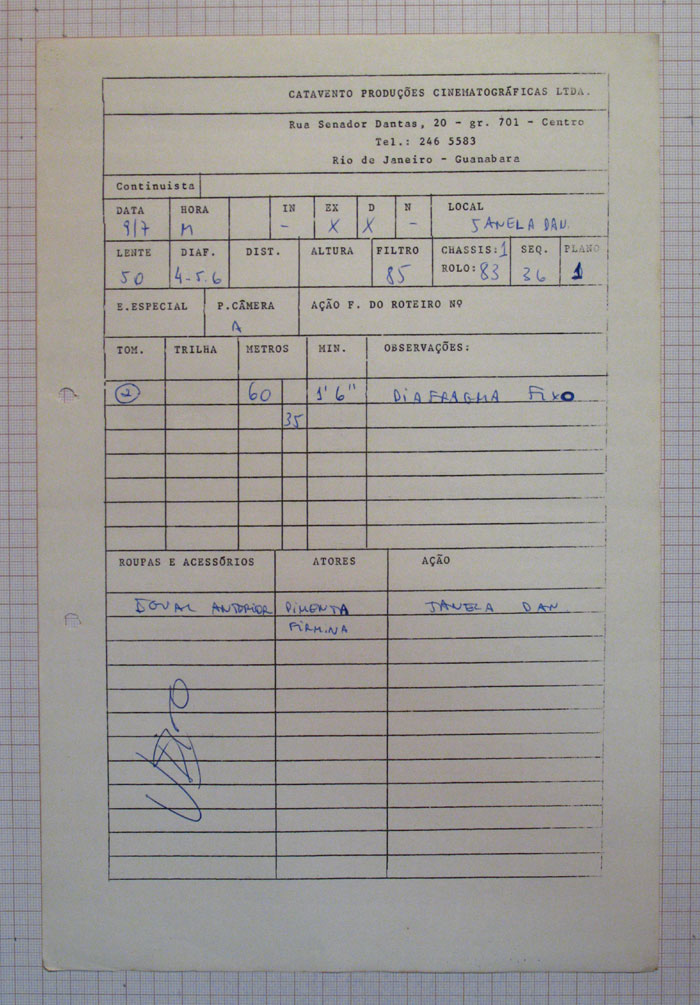 CATAVENTO PRODUÇÕES CINEMATOGRÁFICAS LTDA.
Rua Senador Dantas, 20 - gr. 701 - Centro
Tel.: 246 5583
Rio de Janeiro - Guanabara
Continuista
DATA HORA IN EX D N LOCAL
9/7 M - X X - JANELA DAN.
LENTE DIAF. DIST. ALTURA FILTRO CHASSIS: 1 SEQ. PLANO
50 4-5.6 85 ROLO: 83 36 1
E.ESPECIAL P.CÂMERA AÇÃO F. DO ROTEIRO Nº
A
TOM. TRILHA METROS MIN. OBSERVAÇÕES:
2 60 1' 6" DIAFRAGMA FIXO
35
ROUPAS E ACESSÓRIOS ATORES AÇÃO
IGUAL ANTERIOR PIMENTA JANELA DAN.
FIRMINA